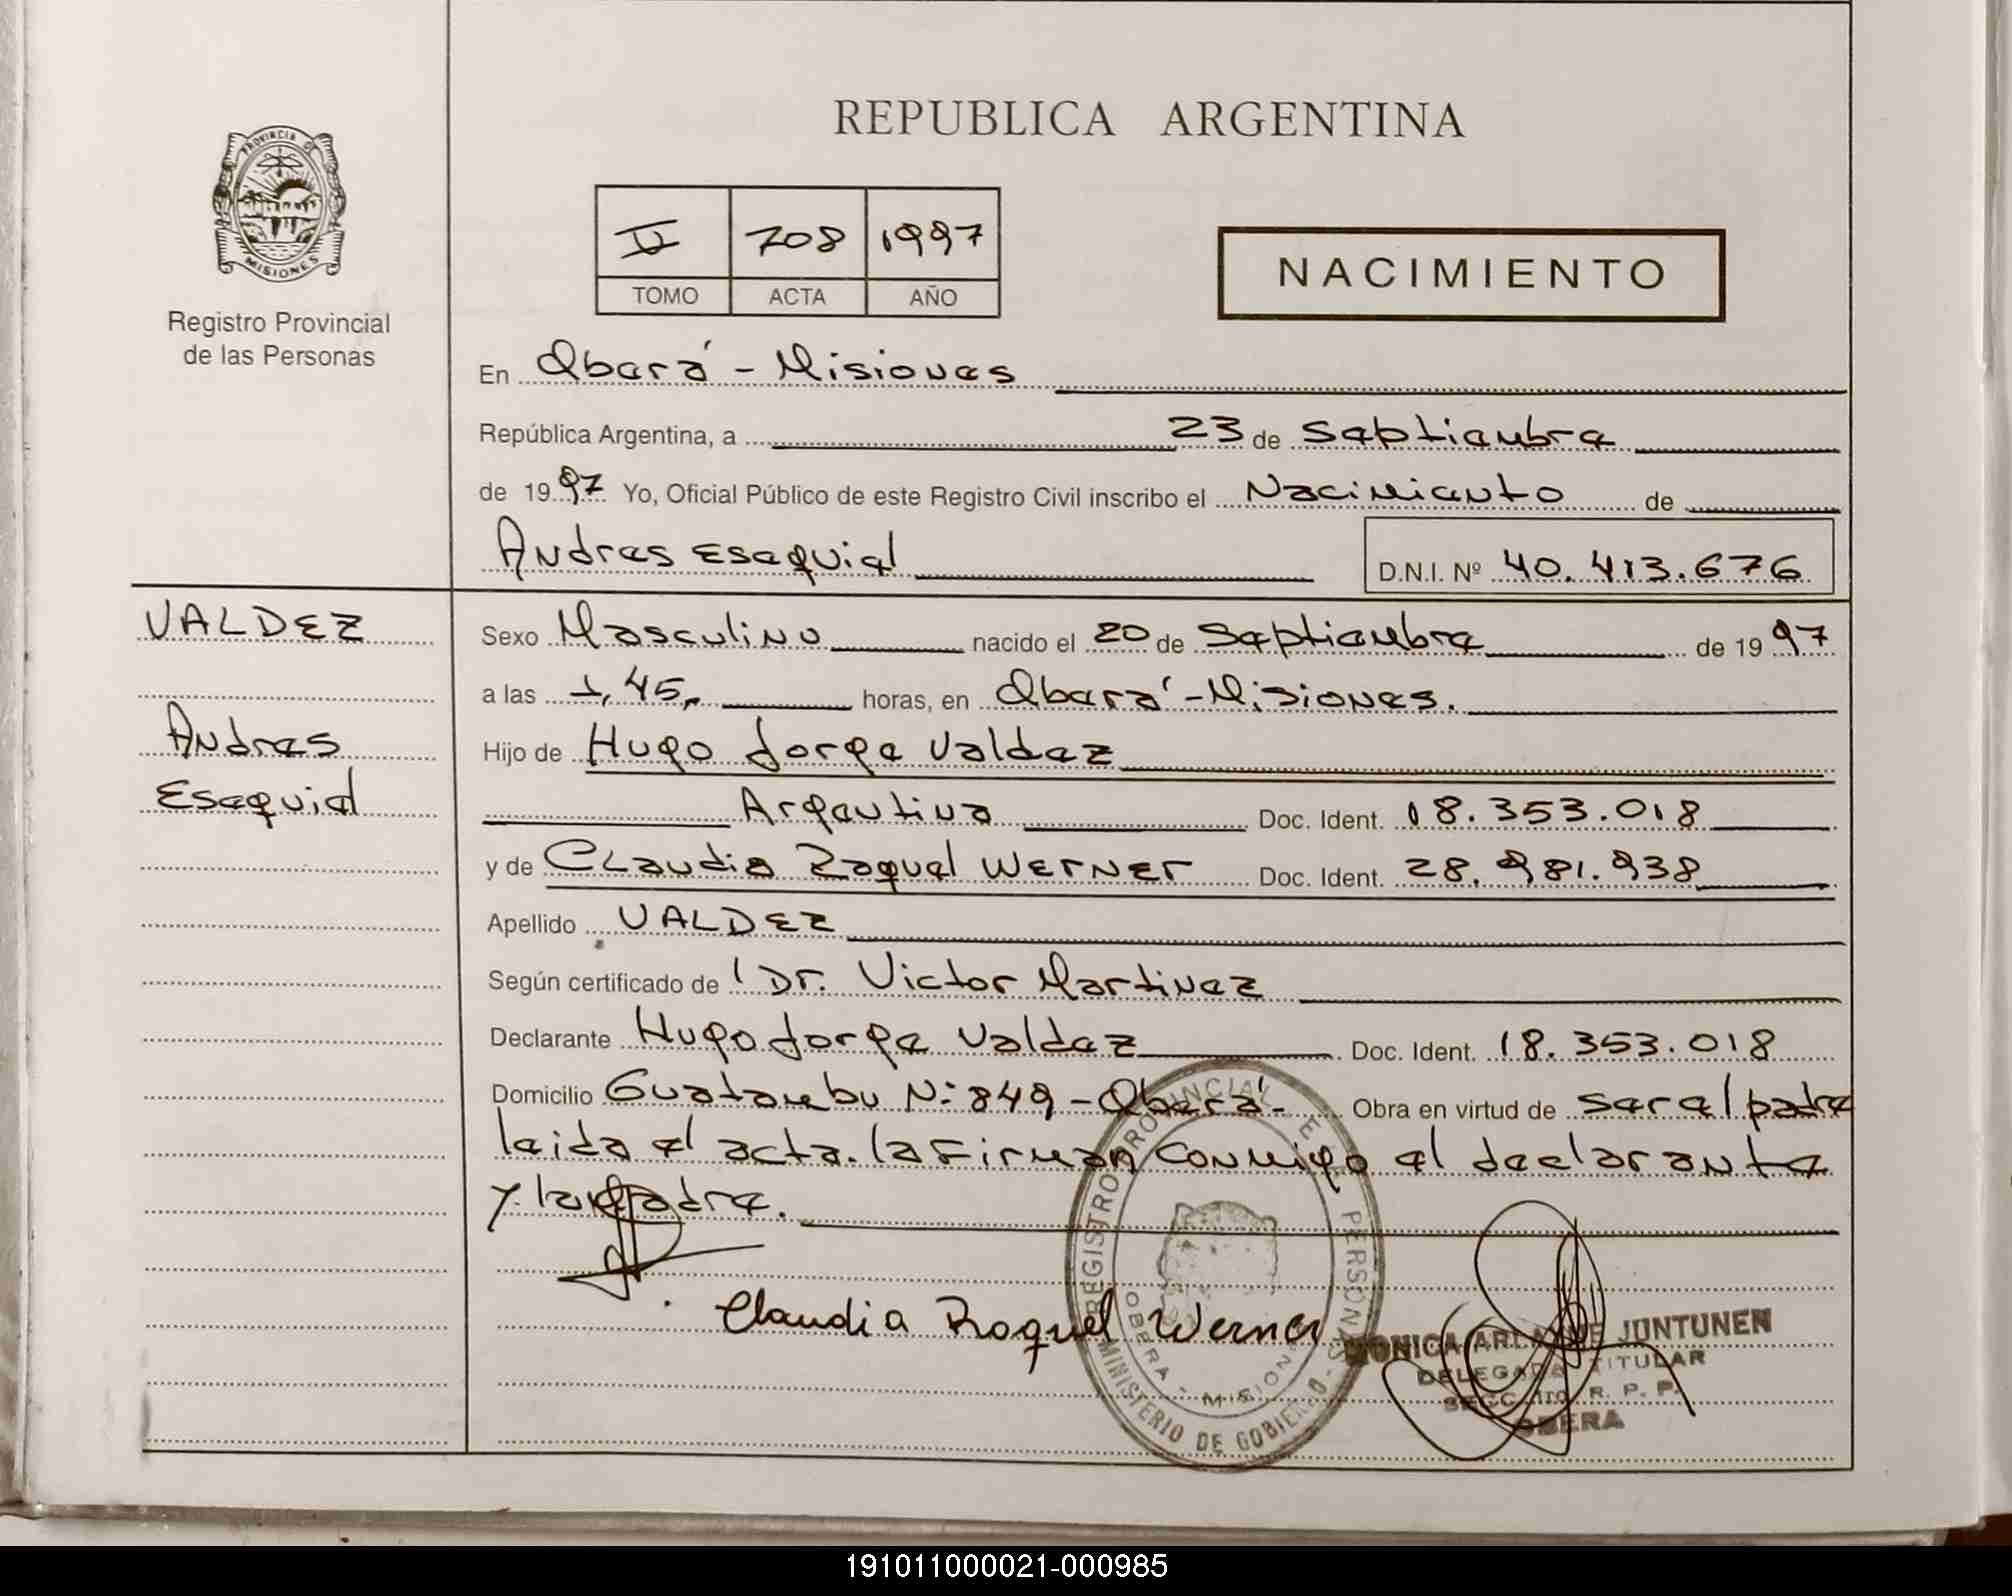 REPUBLICA ARGENTINA
PROVINCIA DE
MISIONES
Registro Provincial
de las Personas
II 708 1997
TOMO ACTA AÑO
NACIMIENTO
En Oberá - Misiones
República Argentina, a 23 de Septiembre
de 1997 Yo, Oficial Público de este Registro Civil inscribo el Nacimiento de
Andres Esequiel D.N.I. Nº 40.413.676
VALDEZ
Andres
Esequiel
Sexo Masculino nacido el 20 de Septiembre de 1997
a las 1,45, horas, en Oberá - Misiones.
Hijo de Hugo Jorge Valdez
Argentina Doc. Ident. 18.353.018
y de Claudia Raquel WERNER Doc. Ident. 28.981.938
Apellido VALDEZ
Según certificado de Dr. Victor Martinez
Declarante Hugo Jorge Valdez Doc. Ident. 18.353.018
Domicilio Guatambu N: 849 - Oberá - Obra en virtud de ser el padre
leida el acta. la Firman conmigo el declarante
y la madre.
Claudia Raquel Werner
REGISTRO PROVINCIAL DE PERSONAS
OBERA - MISIONES
MINISTERIO DE GOBIERNO
MONICA JUNTUNEN
DELEGADA TITULAR
SECC. 1ra. R. P. P.
OBERA
191011000021-000985